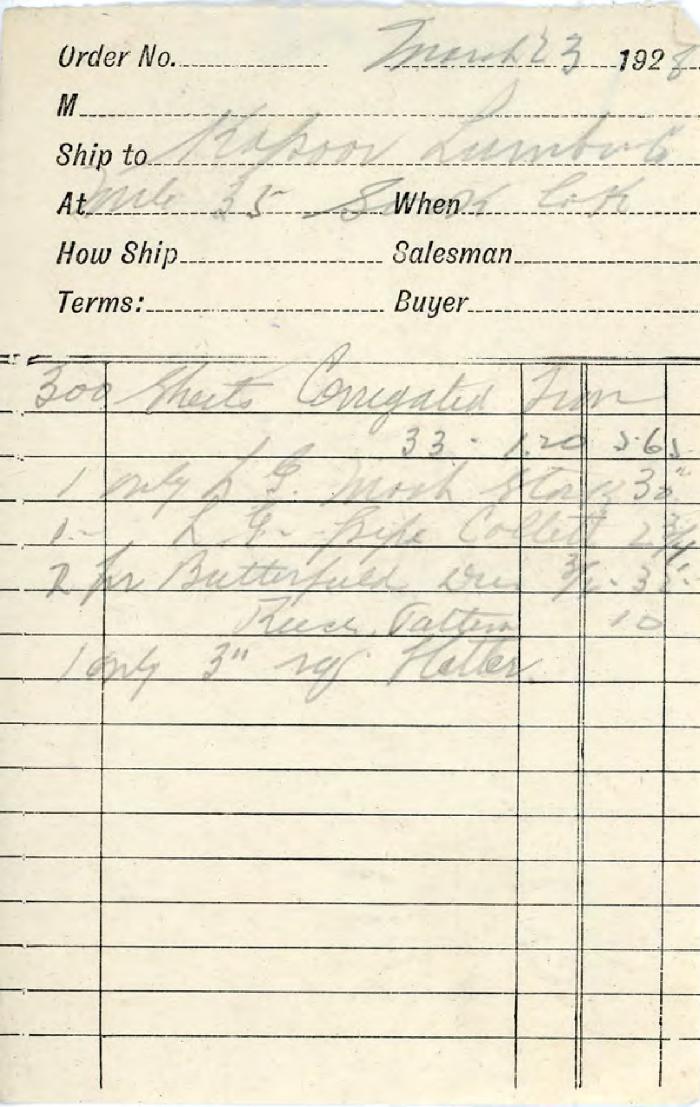 Order No. March 23 1928
M
Ship to Kapoor Lumber Co
At Mile 35 When
How Ship Salesman
Terms: Buyer
300 Sheets Corregated Iron
33 - 1.20 5.65
1 only L. G.
1 - L G - Pipe
2 pr Butterfield Dies
Reece Pattern 10
1 only 3" sq Flatter